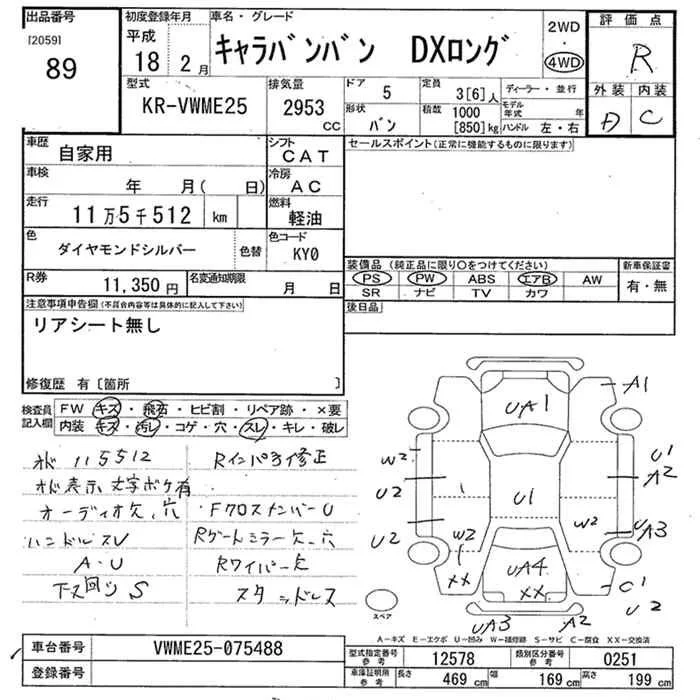 出品番号 初度登録年月 車名・グレード 評価点
[2059] 平成 キャラバンバン DXロング 2WD ・ 4WD R
89 18 2月
型式 排気量 ドア 5 定員 3[6]人 ディーラー・並行 外装 内装
KR-VWME25 2953 CC 形状 バン 積載 1000 [850]kg モデル年式 年 ハンドル 左・右 A C
車歴 自家用 シフト CAT セールスポイント(正常に機能するものに限ります)
車検 年 月( 日) 冷房 AC
走行 11万5千512 km 燃料 軽油
色 ダイヤモンドシルバー 色替 色コード KY0
装備品 (純正品に限り〇をつけてください) 新車保証書
R券 11,350円 名変通知期限 月 日 PS PW ABS エアB AW 有・無
SR ナビ TV カワ
注意事項申告欄(不具合内容等は具体的に記入して下さい) 後日品
リアシート無し
修復歴 有〔箇所 〕
検査員記入欄 FW キズ・飛石・ヒビ割・リペア跡・×要
内装 キズ・汚レ・コゲ・穴・スレ・キレ・破レ
メーター 115512 Rインパネ修正
オーディオ欠、穴 FクロスメンバーU
ハンドルスレ Rゲートミラー欠、穴
A・U Rワイパー欠
下ス回り S スタッドレス
A1
UA1
W2 U1
U2 A2
U1
W2 W2 UA3
U2
UA4
XX XX C1
U2
UA3 A2
スペア
A-キズ E-エクボ U-凹み W-補修跡 S-サビ C-腐食 XX-交換済
車台番号 VWME25-075488 型式指定番号 参考 12578 類別区分番号 参考 0251
登録番号 車庫証明用 参考 長さ 469 cm 幅 169 cm 高さ 199 cm